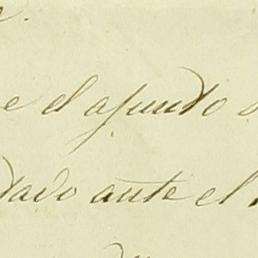 e el asunto
tado ante el